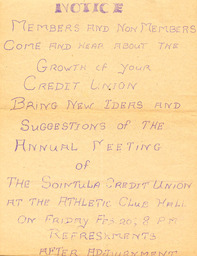 NOTICE
MEMBERS AND NON MEMBERS
COME AND HEAR ABOUT THE
GROWTH OF YOUR
CREDIT UNION
BRING NEW IDEAS AND
SUGGESTIONS OF THE
ANNUAL MEETING
OF
THE SOINTULA CREDIT UNION
AT THE ATHLETIC CLUB HALL
ON FRIDAY FEB 20, 8 P.M
REFRESHMENTS
AFTER ADJOURNMENT